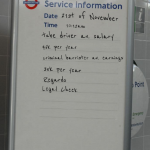 Service information
Date 21st of November
Time
Tube driver av salary
44k per year
criminal barrister av earnings
30k per year
Regards
Legal Cheek
Point